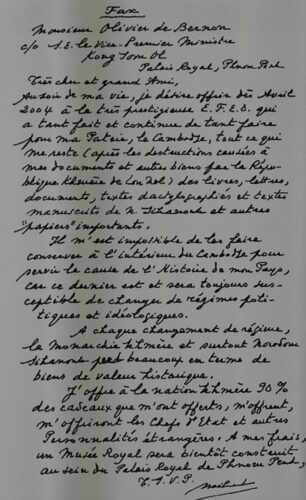 Fax
Monsieur Olivier de Bernon
c/o S.E. le Vice-Premier Ministre
Kong Som Ol
Palais Royal, Phnom Penh
Très cher et grand Ami,
Au soir de ma vie, je désire offrir dès Avril
2004 à la très prestigieuse E.F.E.O. qui
a tant fait et continue de tant faire
pour ma Patrie, le Cambodge, tout ce qui
me reste (après les destructions causées à
mes documents et autres biens par la Répu-
blique Khmère de Lon Nol) des livres, lettres,
documents, textes dactylographiés et textes
manuscrits de N. Sihanouk et autres
"papiers" importants.
Il m'est impossible de les faire
conserver à l'intérieur du Cambodge pour
servir la cause de l'Histoire de mon Pays,
car ce dernier est et sera toujours sus-
ceptible de changer de régimes poli-
tiques et idéologiques.
A chaque changement de régime,
la Monarchie khmère et surtout Norodom
Sihanouk perd beaucoup en terme de
biens de valeur historique.
J'offre à la nation khmère 90 %
des cadeaux que m'ont offerts, m'offrent,
m'offriront les Chefs d'Etat et autres
Personnalités étrangères. A mes frais,
un Musée Royal sera bientôt construit
au sein du Palais Royal de Phnom Penh.
T.S.V.P.